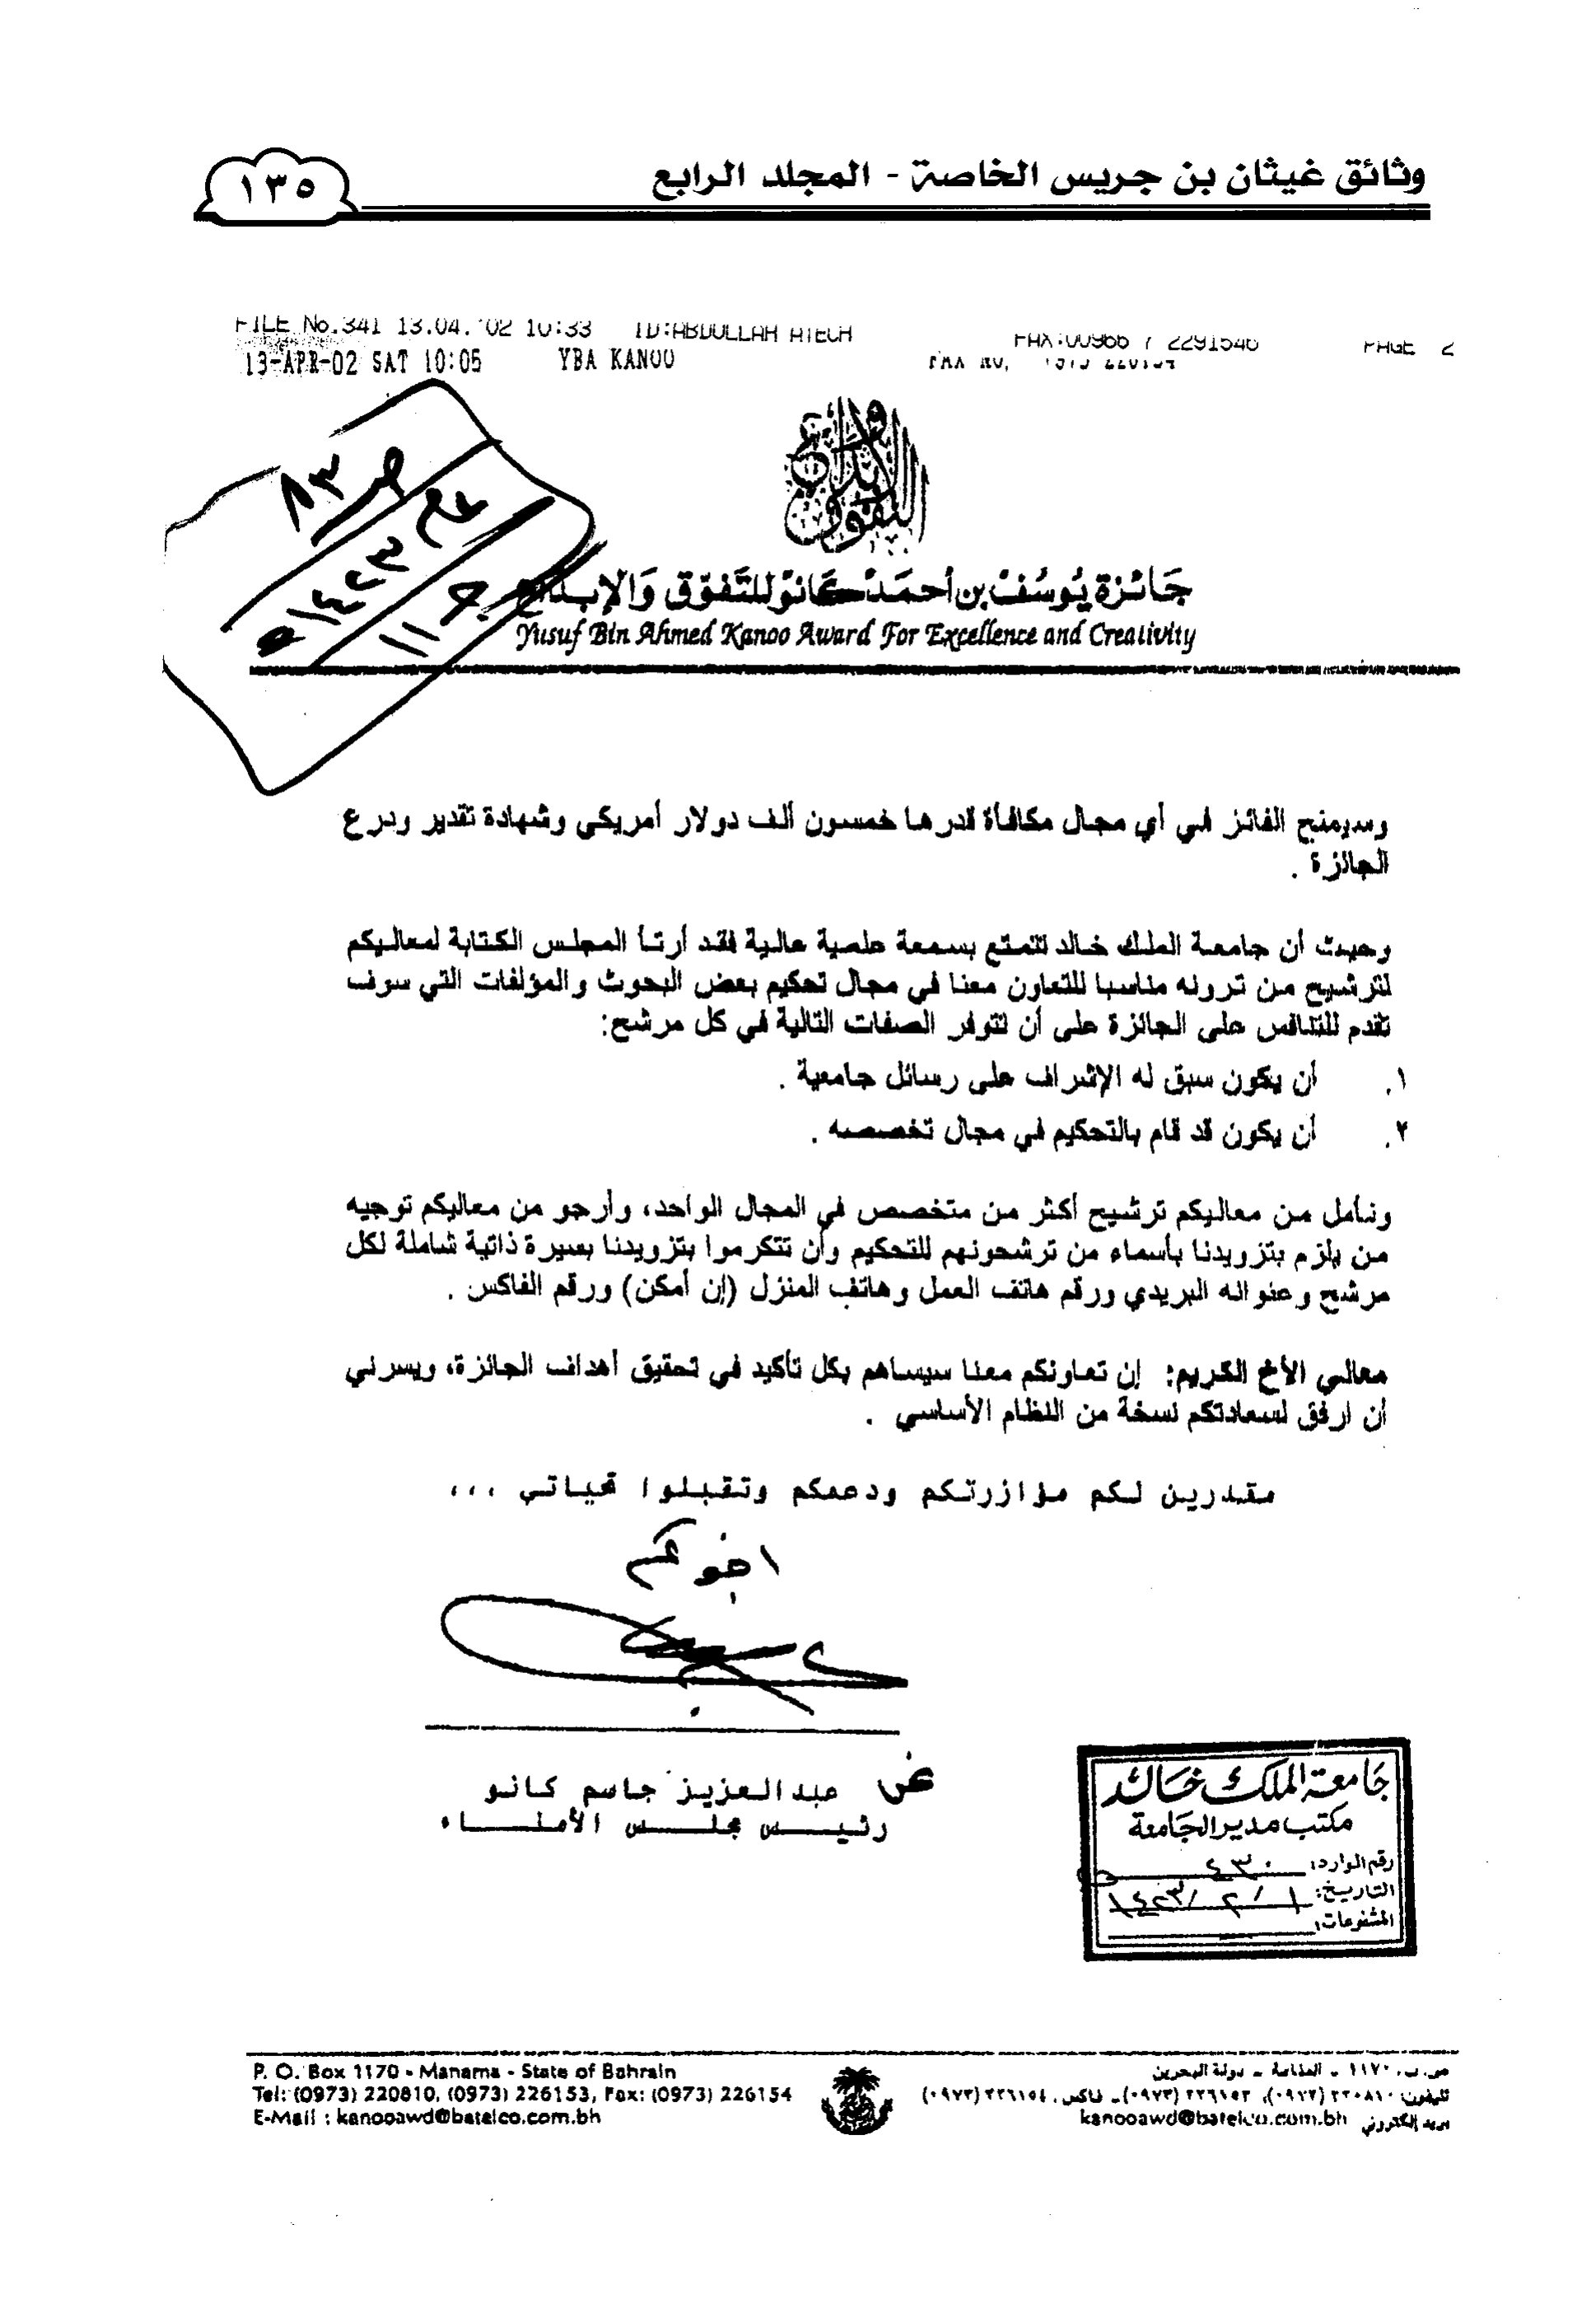 وثائق غيثان بن جريس الخاصة - المجلد الرابع
١٣٥
FILE No.341 13.04.'02 10:33 ID:ABDULLAH ATECH FAX:00966 7 2291540 PAGE 2
13-APR-02 SAT 10:05 YBA KANOO FAX NO.
جَائزة يُوسُف بن أحمَد كَانو للتَّفوّق وَالإبداع
Yusuf Bin Ahmed Kanoo Award For Excellence and Creativity
وسيمنح الفائز في أي مجال مكافأة قدرها خمسون ألف دولار أمريكي وشهادة تقدير ودرع
الجائزة .
وحيث أن جامعة الملك خالد تتمتع بسمعة علمية عالية فقد أرتأ المجلس الكتابة لمعاليكم
لترشيح من ترونه مناسبا للتعاون معنا في مجال تحكيم بعض البحوث والمؤلفات التي سوف
تقدم للتنافس على الجائزة على أن تتوفر الصفات التالية في كل مرشح:
١. أن يكون سبق له الإشراف على رسائل جامعية .
٢. أن يكون قد قام بالتحكيم في مجال تخصصه .
ونأمل من معاليكم ترشيح أكثر من متخصص في المجال الواحد، وأرجو من معاليكم توجيه
من يلزم بتزويدنا بأسماء من ترشحونهم للتحكيم وأن تتكرموا بتزويدنا بسيرة ذاتية شاملة لكل
مرشح وعنوانه البريدي ورقم هاتف العمل وهاتف المنزل (إن أمكن) ورقم الفاكس .
معالي الأخ الكريم: إن تعاونكم معنا سيساهم بكل تأكيد في تحقيق أهداف الجائزة، ويسرني
أن ارفق لسعادتكم نسخة من النظام الأساسي .
مقدرين لكم مؤازرتكم ودعمكم وتقبلوا تحياتي ،،،
اخوكم
عن عبدالعزيز جاسم كانو
رئيس مجلس الأمناء
جامعة الملك خالد
مكتب مدير الجامعة
رقم الوارد: ٤٣٠
التاريخ: ١/ ٢/ ١٤٢٣
المشفوعات:
P. O. Box 1170 - Manama - State of Bahrain
Tel: (0973) 220810, (0973) 226153, Fax: (0973) 226154
E-Mail : kanooawd@batelco.com.bh
ص.ب. ١١٧٠ - المنامة - دولة البحرين
تليفون: ٢٢٠٨١٠ (٠٩٧٣)، ٢٢٦١٥٣ (٠٩٧٣) - فاكس. ٢٢٦١٥٤ (٠٩٧٣)
بريد إلكتروني kanooawd@batelco.com.bh